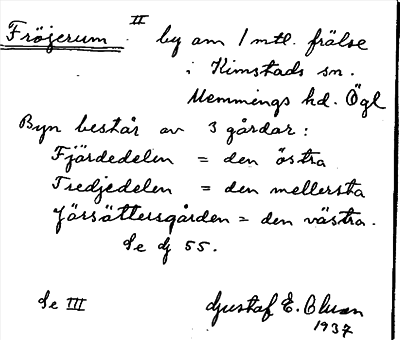 Fröjerum II by om 1 mtl. frälse
i Kimstads sn.
Memmings hd. Ögl
Byn består av 3 gårdar:
Fjärdedelen = den östra
Tredjedelen = den mellersta
Jörsättersgården = den västra.
Se dj 55.
Se III
Gustaf E.
1937